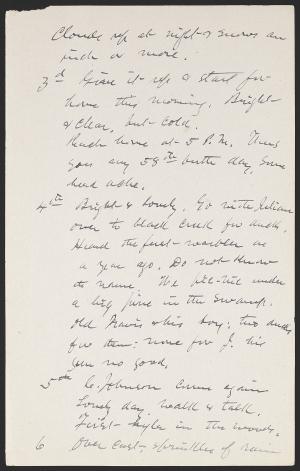 Clouds up at night & snows an
inch or more.
3d Give it up & start for
home this morning. Bright
& clear, but cold.
Reach home at 5 P.M. Thus
goes my 58th birth day, some
head ache.
4th Bright & lovely. Go with Julian
over to black creek for ducks.
Heard the first warbler as
a year ago. Do not know
its name. We sit under
a big pine in the swamp.
Old Travis & his boy; two ducks
for them: none for J. his
gun no good.
5th C. Johnson came again
Lovely day, walk & talk.
First Hyla in the woods.
6 Over cast, sprinkles of rain